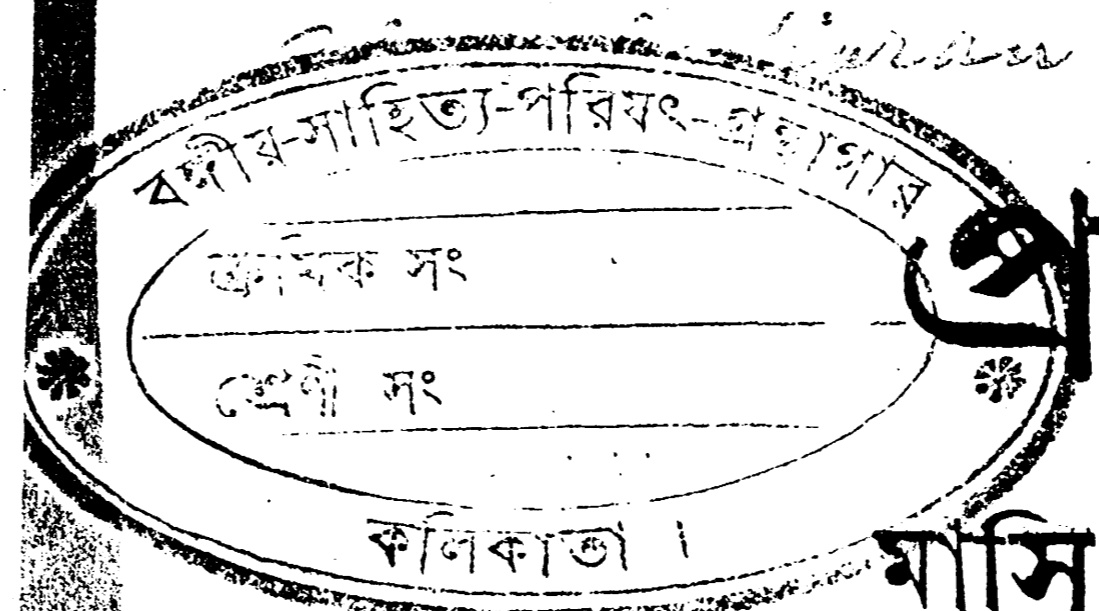 বঙ্গীয়-সাহিত্য-পরিষৎ-গ্রন্থাগার
ক্রমিক সং
শ্রেণী সং
কলিকাতা ।
মাসি